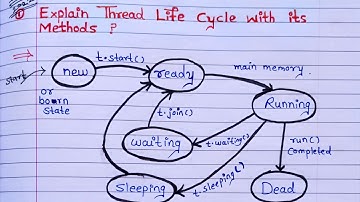 ① Explain Thread Life Cycle with its
Methods ?
t.start()
start
new
ready
main memory.
or
born
State
t.join()
Running
waiting
t.waiting()
run()
Completed
t.sleeping()
Sleeping
Dead